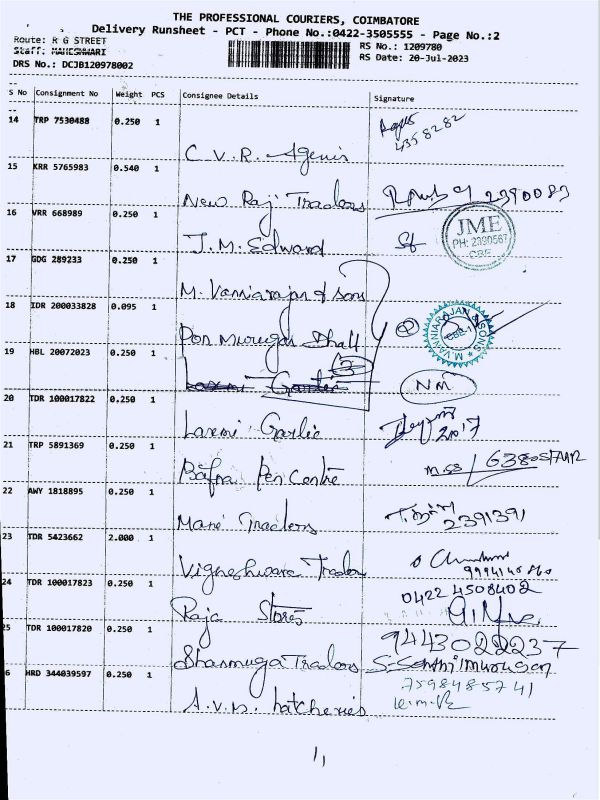 THE PROFESSIONAL COURIERS, COIMBATORE
Delivery Runsheet - PCT - Phone No.:0422-3505555 - Page No.:2
Route: R G STREET
RS No.: 1209780
Staff: MAHESHWARI
RS Date: 20-Jul-2023
DRS No.: DCJB120978002
S No Consignment No Weight PCS Consignee Details Signature
14 TRP 7530488 0.250 1
4358282
C.V.R.
15 KRR 5765983 0.540 1
New Raj Traders 2390083
16 VRR 668989 0.250 1
J.M. Edward
JME
PH: 2390567
CBE
17 GDG 289233 0.250 1
M. Vanniarajan & sons
18 IDR 200033828 0.095 1
Pon Murugan Dhall
M.VANNIARAJAN & SONS
CBE-1
19 HBL 20072023 0.250 1
3
Laxmi Garlic
NM
20 TDR 100017822 0.250 1
Laxmi Garlic
2017
21 TRP 5891369 0.250 1
Bafna Pen Centre
22 AWY 1818895 0.250 1
Mané Traders 2391391
23 TDR 5423662 2.000 1
Vigneshwara Trader
24 TDR 100017823 0.250 1
0422 4508402
Raja Stores
25 TDR 100017820 0.250 1
9443022237
Shanmuga Traders S. Senthilmurugan
6 HRD 344039597 0.250 1
7598485741
A.V.M. hatcheries